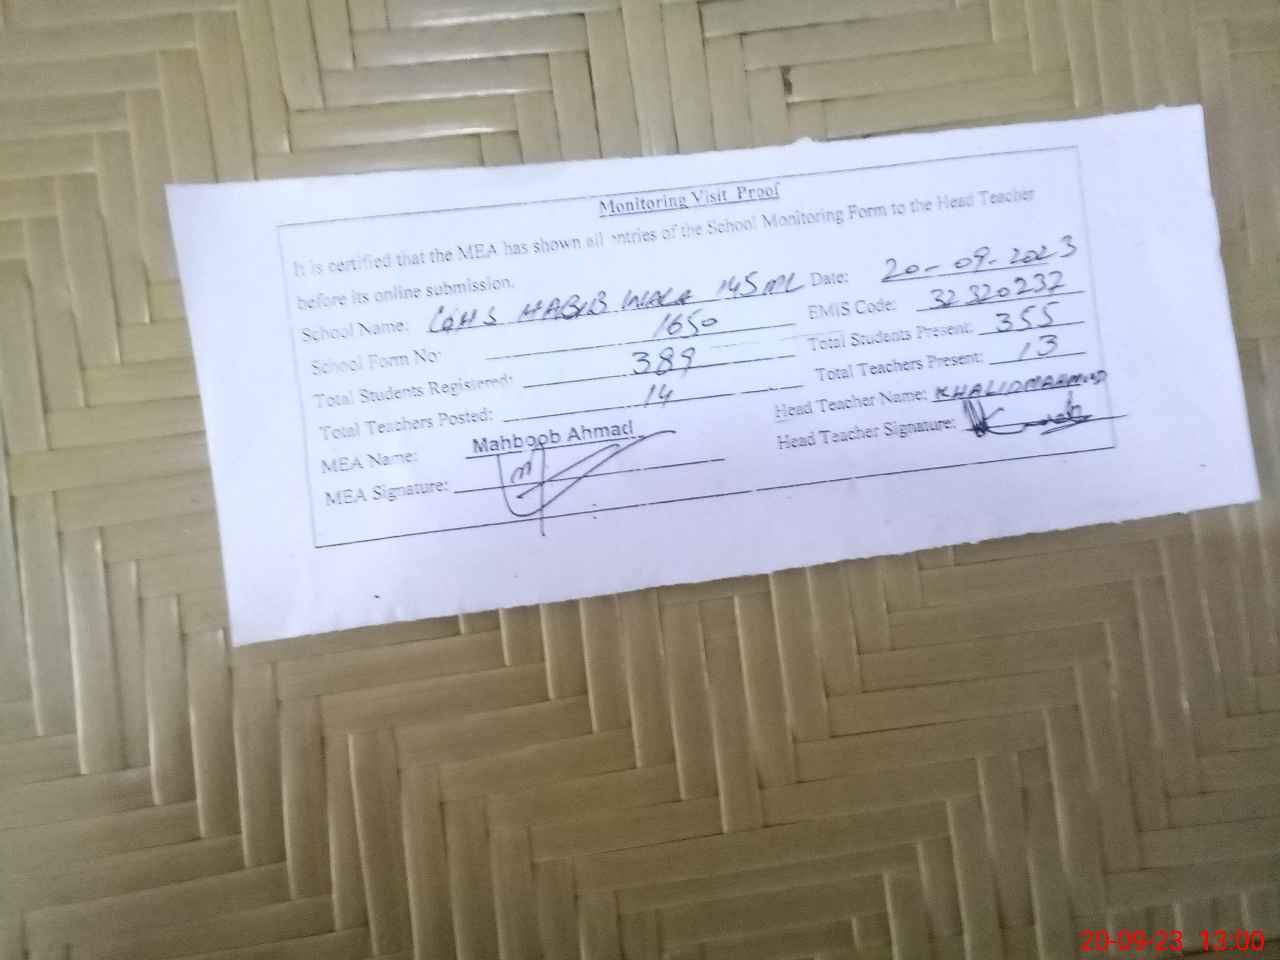 Monitoring Visit Proof
It is certified that the MEA has shown all entries of the School Monitoring Form to the Head Teacher
before its online submission.
School Name: GHS HABIB WALA 145 ML Date: 20-09-2023
School Form No: 1650 EMIS Code: 32320232
Total Students Registered: 389 Total Students Present: 355
Total Teachers Posted: 14 Total Teachers Present: 13
MEA Name: Mahboob Ahmad Head Teacher Name: KHALID MAHMOOD
MEA Signature: Head Teacher Signature:
20-09-23 13:00